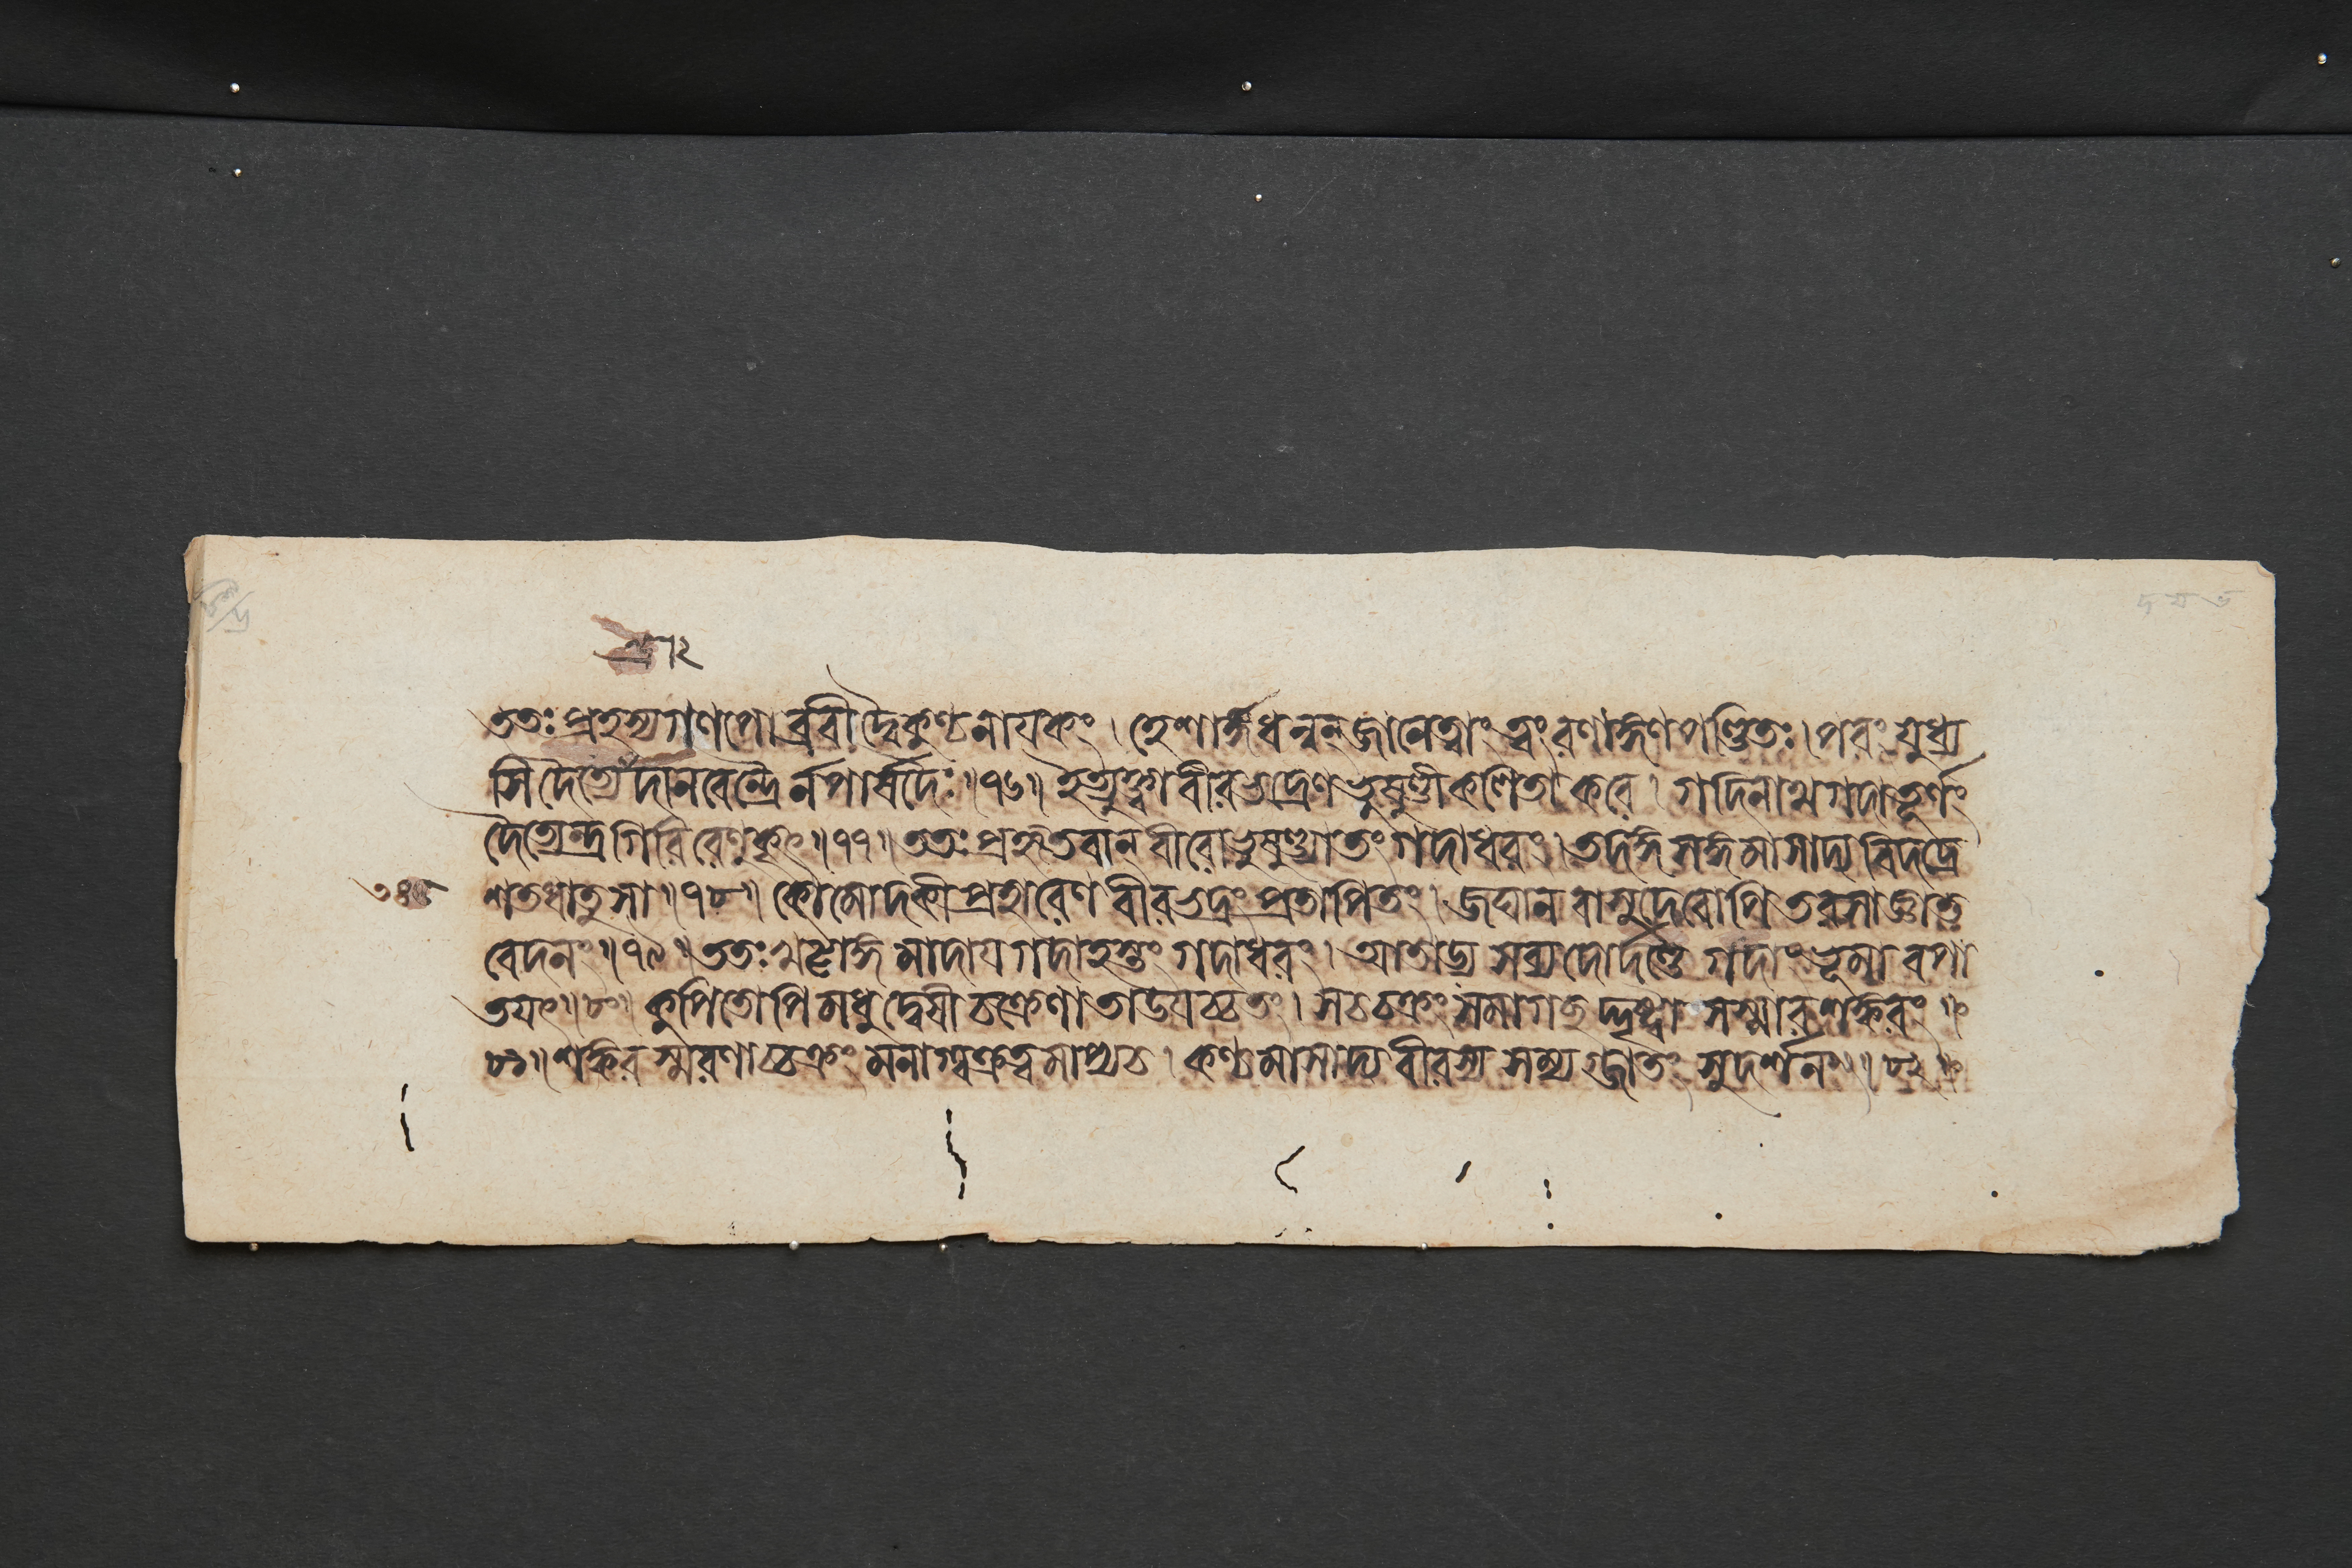 ততঃ প্রহস্য গণপো ব্রবীদ্বৈকুণ্ঠনায়কং । হে শার্ঙ্গধন্বন্ জানে ত্বাং ত্বং রণাঙ্গণপণ্ডিতঃ । পরং যুধ্য
সি দৈত্যেন্দ্রৈর্দানবেন্দ্রৈর্ন পার্ষদৈঃ ॥ ৭৬ ॥ ইত্যুক্ত্বা বীরভদ্রেণ ভুষুণ্ডী কলিতা করে । গদিনাথ গদা তূর্ণং
দৈত্যেন্দ্রগিরিরেণুকৃৎ ॥ ৭৭ ॥ ততঃ প্রহৃতবান্ বীরো ভুষুণ্ড্যা তং গদাধরং । তদঙ্গসঙ্গমাসাদ্য বিদদ্রে
শতধাতু সা ॥ ৭৮ ॥ কৌমোদকীপ্রহারেণ বীরভদ্রং প্রতাপিতং । জঘান বাসুদেবোপি তরসাজ্ঞাত
বেদনং ॥ ৭৯ ॥ ততঃ খট্বাঙ্গমাদায় গদাহস্তং গদাধরং । আতাড্য সব্যদোর্দণ্ডে গদাং ভূমাবপা
তয়ৎ ॥ ৮০ ॥ কুপিতোপি মধুদ্বেষী চক্রেণাতাডয়চ্চ তং । স চ চক্রং সমাগচ্ছদ্দৃষ্ট্বা সস্মার শঙ্করং ॥
৮১ ॥ শঙ্করস্মরণাচ্চক্রং মনাগ্বক্রত্বমাপ্য চ । কণ্ঠমাসাদ্য বীরস্য সম্যগ্জাতং সুদর্শনং ॥ ৮২ ॥